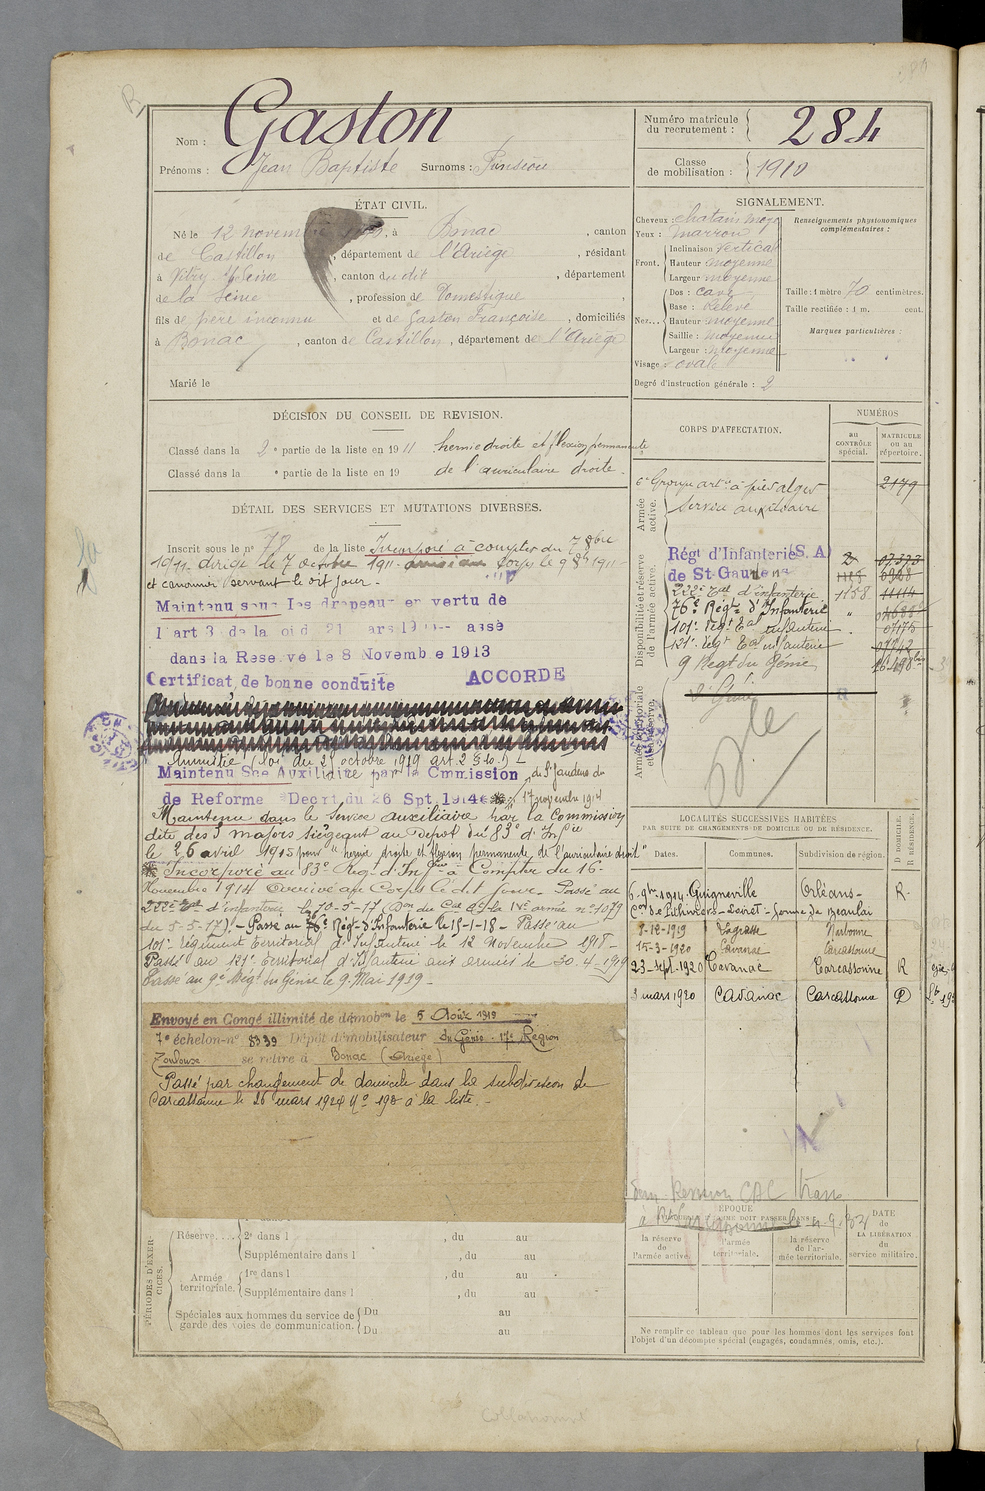 Nom : Gaston
Prénoms : Jean Baptiste Surnoms :
Numéro matricule
du recrutement : 284
Classe
de mobilisation : 1910
ÉTAT CIVIL.
Né le 12 novembre à Bonac , canton
de Castillon , département de l'Ariège , résidant
à Vitry s/ Seine , canton du dit , département
de la Seine , profession de Domestique ,
fils de père inconnu et de Gaston Françoise , domiciliés
à Bonac , canton de Castillon , département de l'Ariège
Marié le
SIGNALEMENT.
Cheveux : chatain moye
Yeux : marron
Front. Inclinaison vertical
Hauteur moyenne
Largeur moyenne
Nez... Dos : cave
Base : Relevé
Hauteur moyenne
Saillie : moyenne
Largeur : moyenne
Visage : ovale
Renseignements physionomiques
complémentaires :
Taille : 1 mètre 70 centimètres.
Taille rectifiée : 1 m. cent.
Marques particulières :
Degré d'instruction générale : 2
DÉCISION DU CONSEIL DE REVISION.
Classé dans la 2e partie de la liste en 1911 hernie droite et flexion permanente
Classé dans la e partie de la liste en 19 de l'auriculaire droite.
DÉTAIL DES SERVICES ET MUTATIONS DIVERSES.
Inscrit sous le n° 78 de la liste Incorporé à compter du 7 8bre
1911. dirigé le 7 octobre 1911 corps le 9 8bre 1911
et canonnier servant le dit jour.
Maintenu sous les drapeaux en vertu de
l'art 3 de la loi d 21 ars 19 assé
dans la Réserve le 8 Novembre 1913
Certificat de bonne conduite ACCORDÉ
Amnistié (loi du 24 octobre 1919 art. 2 § b.)
Maintenu Sce Auxiliaire par la Cmmission de St Gaudens du
de Réforme Décrt du 26 Spt 1914 17 novembre 1914
Maintenu dans le service auxiliaire par la Commission
dite des 3 majors siégeant au Dépôt du 83e d'Infie
le 26 avril 1915 pour "hernie droite et flexion permanente de l'auriculaire droit"
Incorporé au 83e Rég. d'Infie à Compter du 16
Novembre 1914 Arrivé au Corps le d.t jour. Passé au
222e Ter d'infanterie le 10-5-17 (Don du Cel Ct la IVe armée n° 1079
du 5-5-17). Passé au 76e Régt d'Infanterie le 15-1-18 - Passé au
101e régiment Territorial d'Infanterie le 12 Novembre 1918 -
Passé au 121e Territorial d'Infanterie aux armées le 30.4-1919
Passé au 9e Régt du Génie le 9 Mai 1919 -
Envoyé en Congé illimité de démobon le 5 Août 1919
7e échelon n° 8339 Dépôt démobilisateur du Génie - 17e Région
Toulouse se retire à Bonac (Ariège)
Passé par changement de domicile dans la subdivision de
Carcassonne le 26 mars 1920 n° 198 à la liste. -
CORPS D'AFFECTATION.
NUMÉROS
au
CONTRÔLE
spécial.
MATRICULE
ou au
répertoire.
Armée
active.
6e Groupe artie à pied alger 2179
Service auxiliaire
Disponibilité et réserve
de l'armée active.
Régt d'Infanterie (S. A)
de St-Gaudens
222e Ter d'infanterie 1158 11114
76e Régt d'Infanterie "
101e Régt Tal infanterie 07175
121e Régt Tal infanterie
9 Régt du Génie
Armée territoriale
et sa réserve.
LOCALITÉS SUCCESSIVES HABITÉES
PAR SUITE DE CHANGEMENTS DE DOMICILE OU DE RÉSIDENCE.
Dates. Communes. Subdivision de région. D DOMICILE. R RÉSIDENCE.
6-9bre-1914 Guigneville Orléans - R
Con de Pithiviers - Loiret - ferme de Beaulai
9-12-1919 Lagrasse Narbonne
15-3-1920 Cavanac Carcassonne
23-sept-1920 Cavanac Carcassonne R
3 mars 1920 Cavanac Carcassonne D
ÉPOQUE
DATE
de
LA LIBÉRATION
du
service militaire.
la réserve
de
l'armée active.
l'armée
territoriale.
la réserve
de l'ar-
mée territoriale.
Ne remplir ce tableau que pour les hommes dont les services font
l'objet d'un décompte spécial (engagés, condamnés, omis, etc.).
PÉRIODES D'EXER-
CICES.
Réserve.... 2e dans l , du au
Supplémentaire dans l , du au
Armée
territoriale. 1re dans l , du au
Supplémentaire dans l , du au
Spéciales aux hommes du service de
garde des voies de communication. Du au
Du au